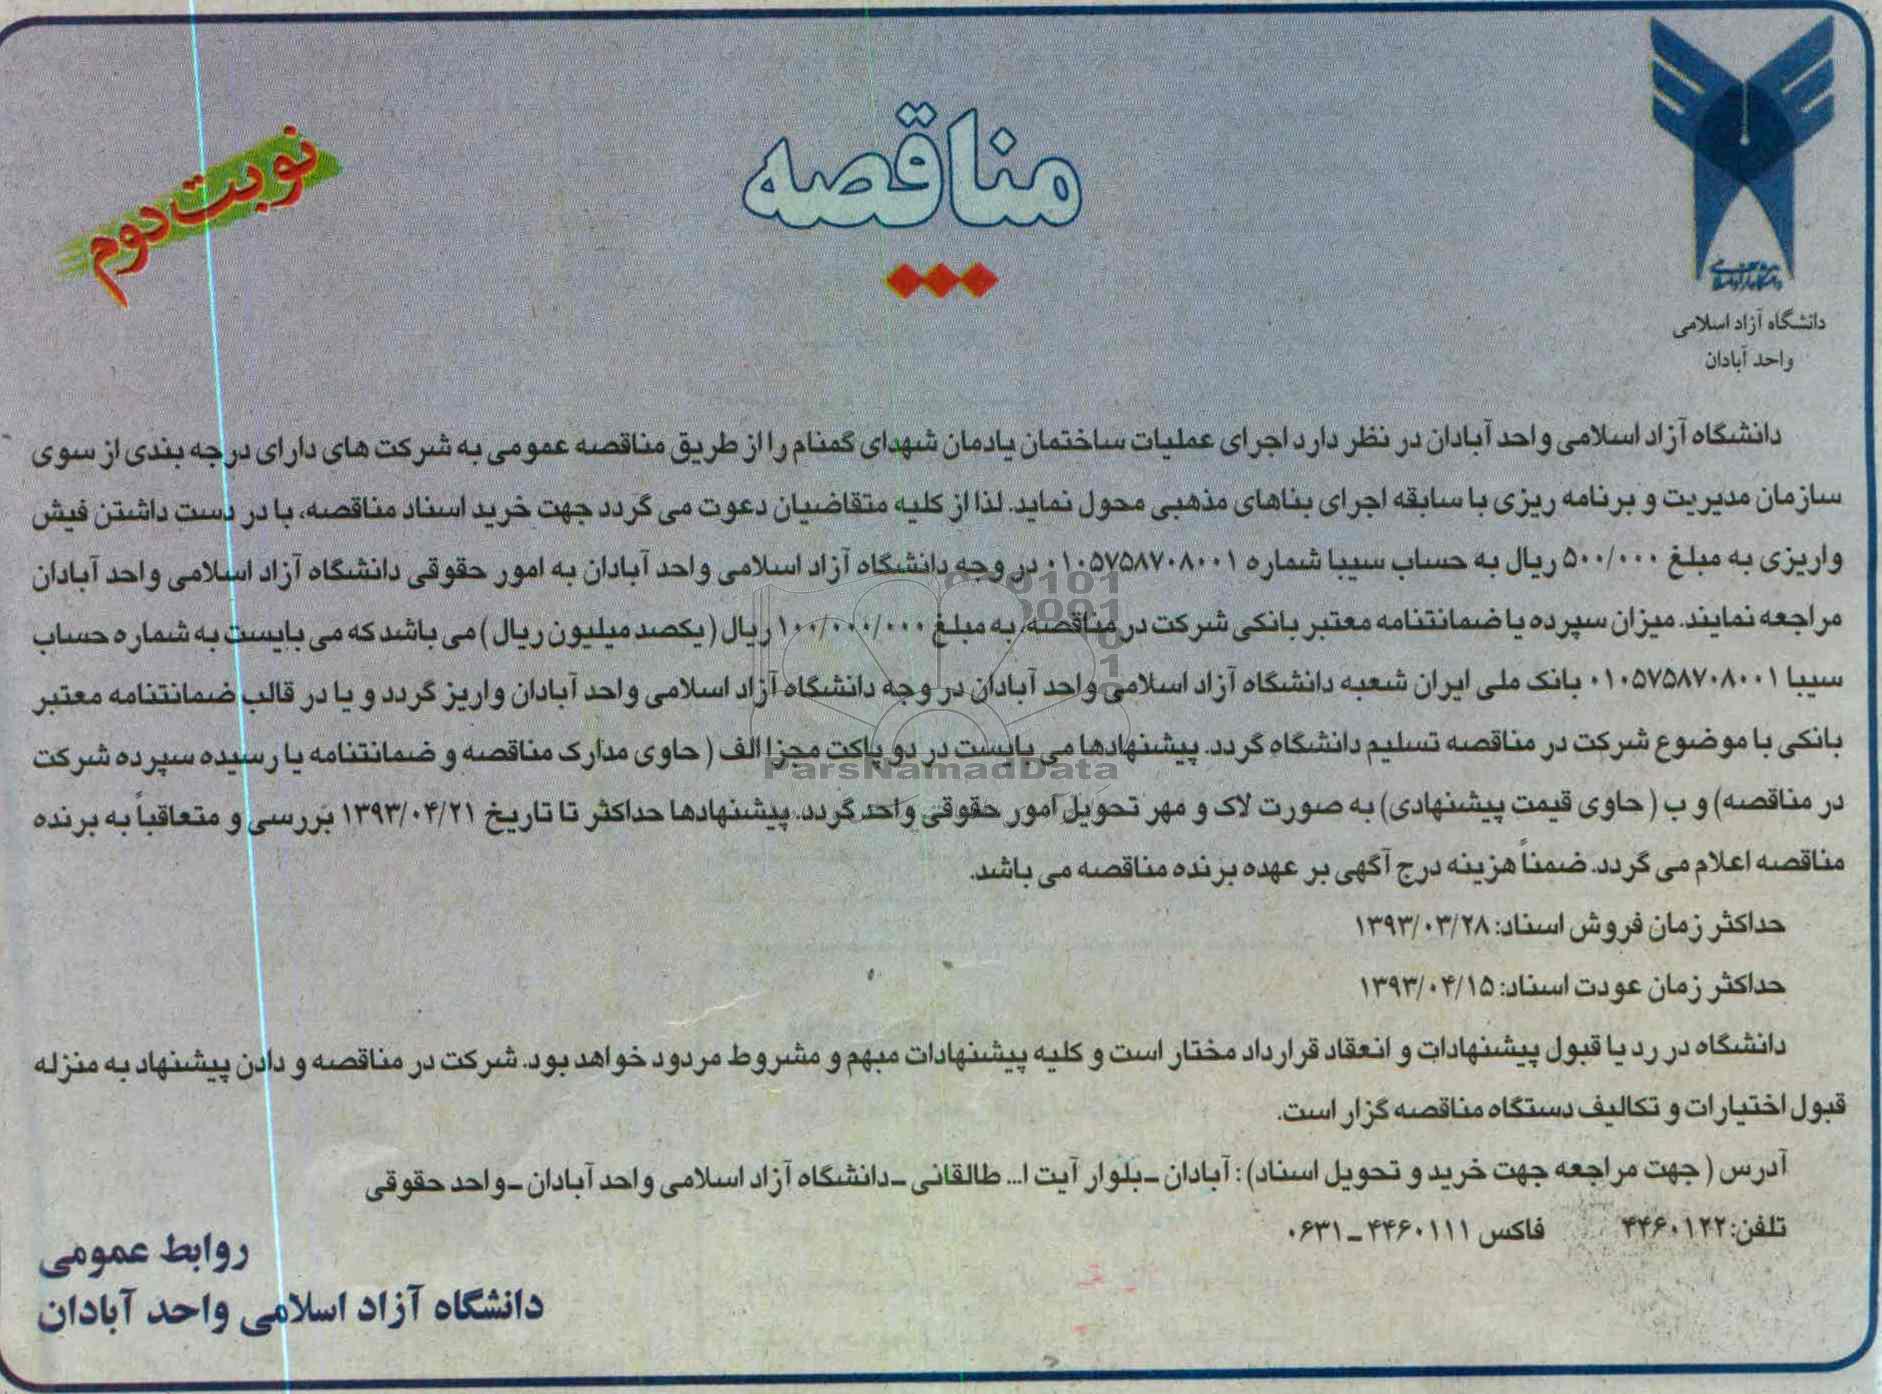 دانشگاه آزاد اسلامی
واحد آبادان
مناقصه
نوبت دوم
دانشگاه آزاد اسلامی واحد آبادان در نظر دارد اجرای عملیات ساختمان یادمان شهدای گمنام را از طریق مناقصه عمومی به شرکت های دارای درجه بندی از سوی
سازمان مدیریت و برنامه ریزی با سابقه اجرای بناهای مذهبی محول نماید. لذا از کلیه متقاضیان دعوت می گردد جهت خرید اسناد مناقصه، با در دست داشتن فیش
واریزی به مبلغ ۵۰۰/۰۰۰ ریال به حساب سیبا شماره ۰۱۰۵۷۵۸۷۰۸۰۰۱ در وجه دانشگاه آزاد اسلامی واحد آبادان به امور حقوقی دانشگاه آزاد اسلامی واحد آبادان
مراجعه نمایند. میزان سپرده یا ضمانتنامه معتبر بانکی شرکت در مناقصه، به مبلغ ۱۰۰/۰۰۰/۰۰۰ ریال (یکصد میلیون ریال) می باشد که می بایست به شماره حساب
سیبا ۰۱۰۵۷۵۸۷۰۸۰۰۱ بانک ملی ایران شعبه دانشگاه آزاد اسلامی واحد آبادان در وجه دانشگاه آزاد اسلامی واحد آبادان واریز گردد و یا در قالب ضمانتنامه معتبر
بانکی با موضوع شرکت در مناقصه تسلیم دانشگاه گردد. پیشنهادها می بایست در دو پاکت مجزا الف (حاوی مدارک مناقصه و ضمانتنامه یا رسیده سپرده شرکت
در مناقصه) و ب (حاوی قیمت پیشنهادی) به صورت لاک و مهر تحویل امور حقوقی واحد گردد. پیشنهادها حداکثر تا تاریخ ۱۳۹۳/۰۴/۲۱ بررسی و متعاقباً به برنده
مناقصه اعلام می گردد. ضمناً هزینه درج آگهی بر عهده برنده مناقصه می باشد.
حداکثر زمان فروش اسناد: ۱۳۹۳/۰۳/۲۸
حداکثر زمان عودت اسناد: ۱۳۹۳/۰۴/۱۵
دانشگاه در رد یا قبول پیشنهادات و انعقاد قرارداد مختار است و کلیه پیشنهادات مبهم و مشروط مردود خواهد بود. شرکت در مناقصه و دادن پیشنهاد به منزله
قبول اختیارات و تکالیف دستگاه مناقصه گزار است.
آدرس (جهت مراجعه جهت خرید و تحویل اسناد): آبادان - بلوار آیت ا... طالقانی - دانشگاه آزاد اسلامی واحد آبادان - واحد حقوقی
تلفن: ۴۴۶۰۱۲۲ فاکس ۴۴۶۰۱۱۱ - ۰۶۳۱
روابط عمومی
دانشگاه آزاد اسلامی واحد آبادان
ParsNamadData